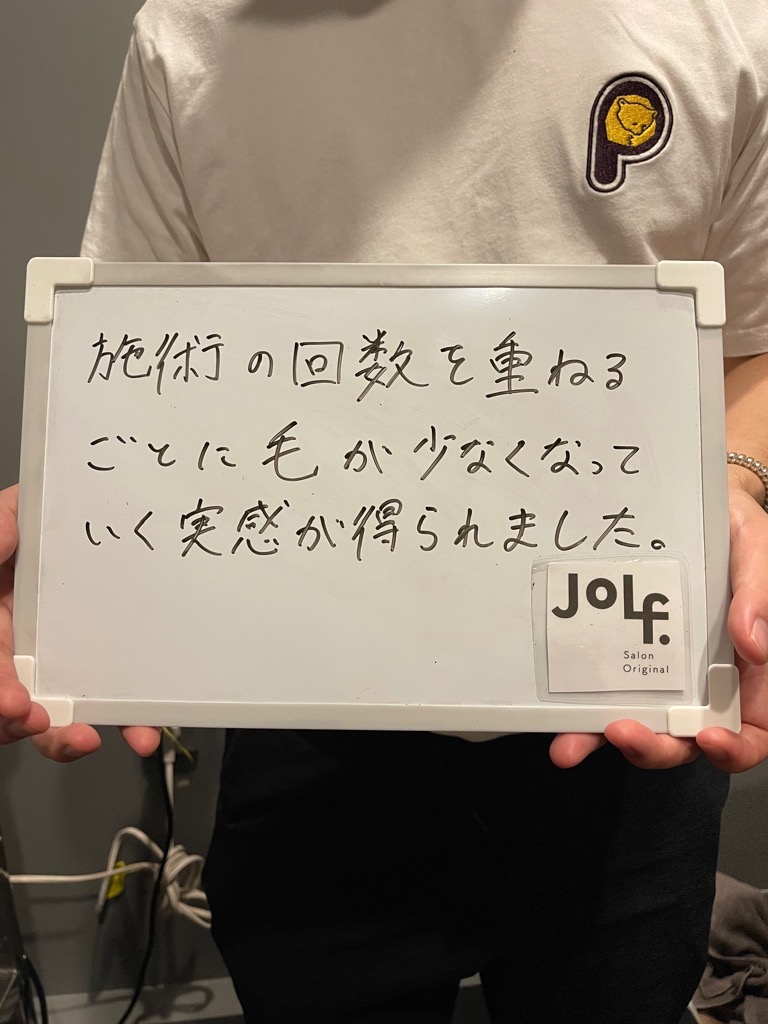 P
施術の回数を重ねる
ごとに毛が少なくなって
いく実感が得られました。
JOLF.
Salon
Original